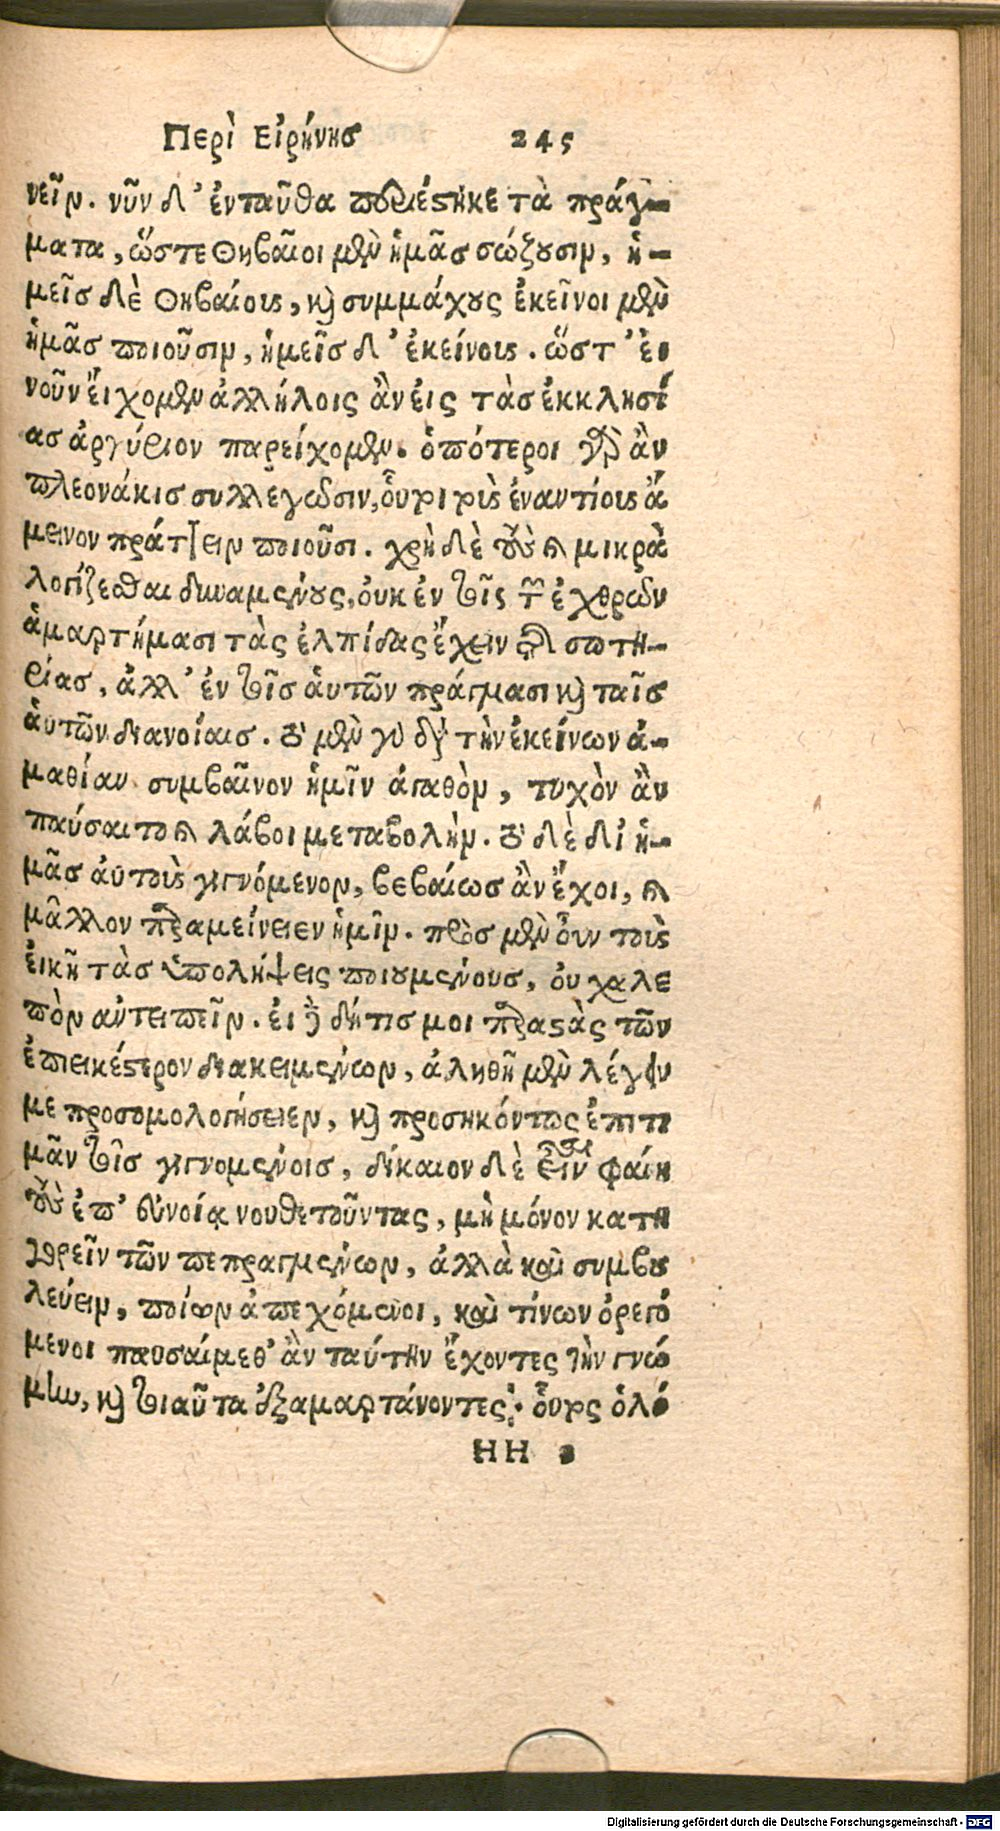 Περὶ Εἰρήνης 245
νεῖν. νῦν δ’ ἐνταῦθα περιέστηκε τὰ πράγ-
ματα, ὥστε Θηβαῖοι μὲν ἡμᾶς σώζουσιν, ἡ-
μεῖς δὲ Θηβαίους, καὶ συμμάχους ἐκεῖνοι μὲν
ἡμᾶς ποιοῦσιν, ἡμεῖς δ’ ἐκείνους. ὥστ’ εἰ
νοῦν εἴχομεν ἀλλήλοις ἂν εἰς τὰς ἐκκλησί
ας ἀργύριον παρείχομεν. ὁπότεροι γὰρ ἂν
πλεονάκις συλλεγῶσιν, οὗτοι τοὺς ἐναντίους ἄ
μεινον πράττειν ποιοῦσι. χρὴ δὲ τοὺς καὶ μικρὰ
λογίζεσθαι δυναμένους, οὐκ ἐν τοῖς τῶν ἐχθρῶν
ἁμαρτήμασι τὰς ἐλπίδας ἔχειν τῆς σωτη-
ρίας, ἀλλ’ ἐν τοῖς αὑτῶν πράγμασι καὶ ταῖς
αὑτῶν διανοίαις. τὸ μὲν γὰρ διὰ τὴν ἐκείνων ἀ-
μαθίαν συμβαῖνον ἡμῖν ἀγαθὸν, τυχὸν ἂν
παύσαιτο καὶ λάβοι μεταβολὴν. τὸ δὲ δι’ ἡ-
μᾶς αὐτοὺς γιγνόμενον, βεβαίως ἂν ἔχοι, καὶ
μᾶλλον παραμείνειεν ἡμῖν. πρὸς μὲν οὖν τοὺς
εἰκῆ τὰς ὑπολήψεις ποιουμένους, οὐ χαλε
πὸν ἀντειπεῖν. εἰ δὲ δή τις μοι παραστὰς τῶν
ἐπιεικέστερον διακειμένων, ἀληθῆ μὲν λέγειν
με προσομολογήσειεν, καὶ προσηκόντως ἐπιτι
μᾶν τοῖς γιγνομένοις, δίκαιον δὲ εἶναι φαίη
τοὺς ἐπ’ εὐνοίᾳ νουθετοῦντας, μὴ μόνον κατη
γορεῖν τῶν πεπραγμένων, ἀλλὰ καὶ συμβου
λεύειν, ποίων ἀπεχόμενοι, καὶ τίνων ὀρεγό
μενοι παυσαίμεθ’ ἂν ταύτην ἔχοντες τὴν γνώ
μην, καὶ τοιαῦτα ἐξαμαρτάνοντες; οὗτος ὁ λό
HH
Digitalisierung gefördert durch die Deutsche Forschungsgemeinschaft - DFG